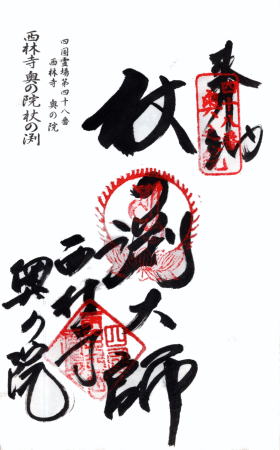 奉納
杖渕大師
西林寺
奥の院
四国霊場第四十八番
西林寺 奥の院
西林寺 奥の院 杖の渕